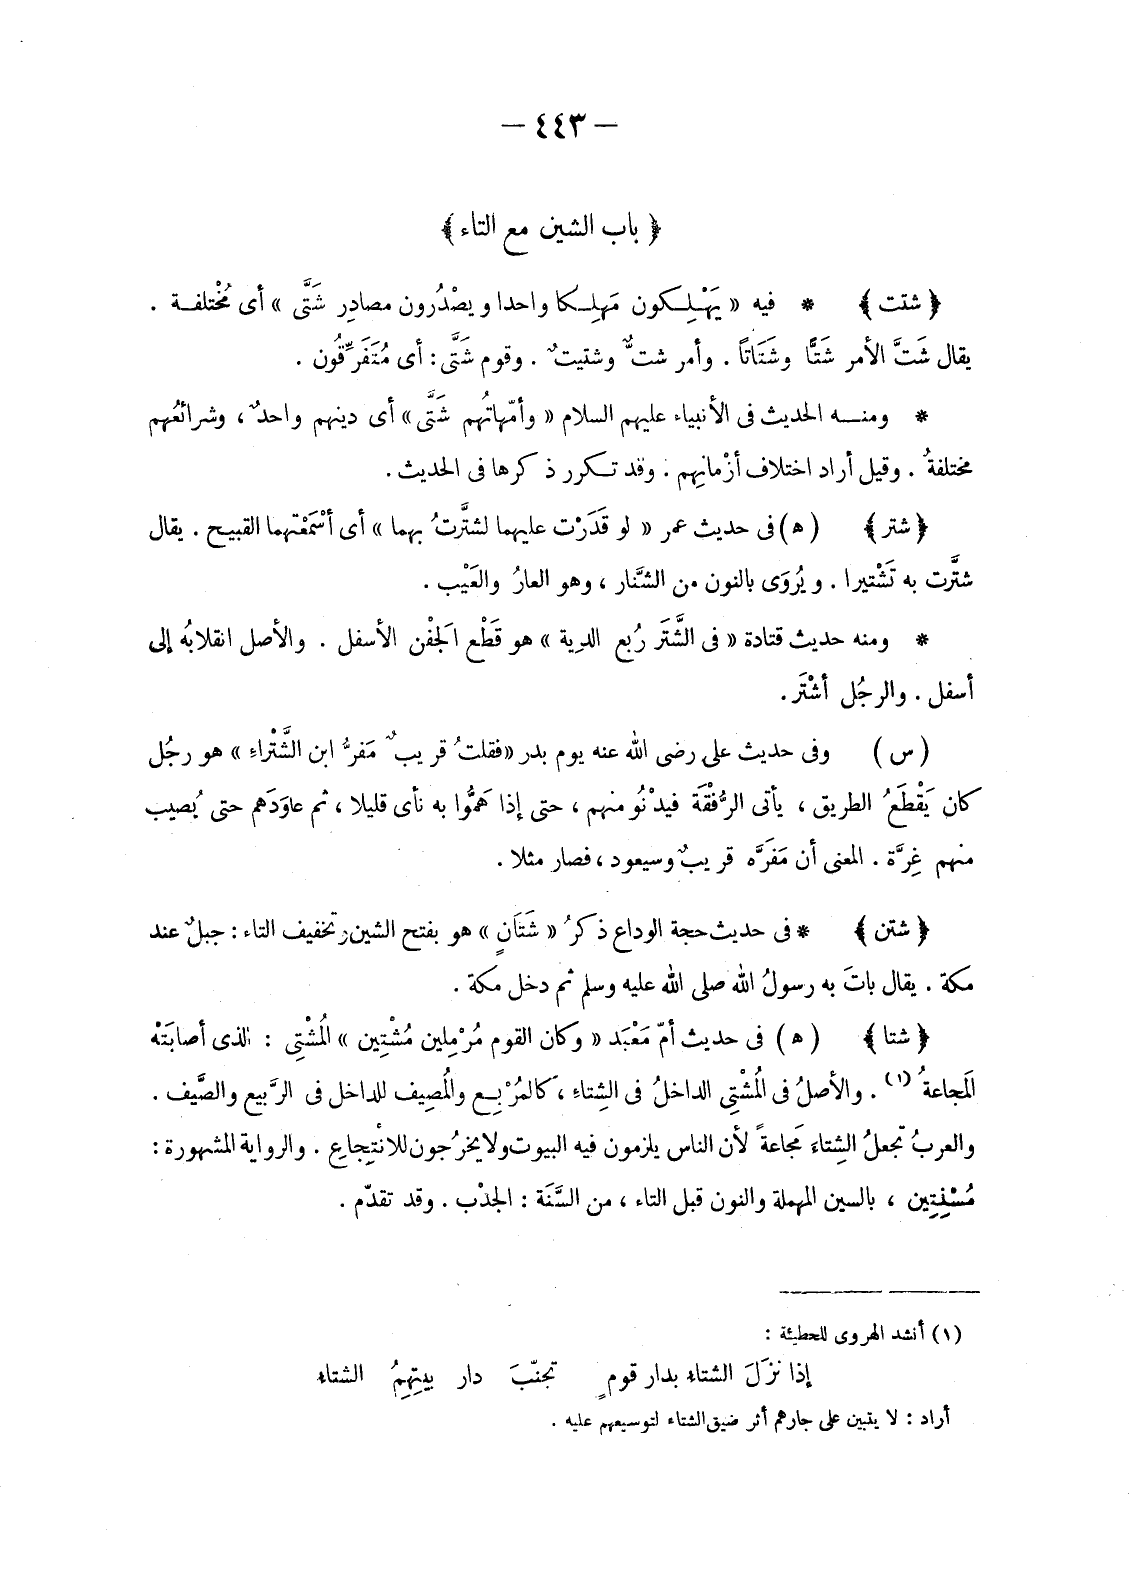 — ٤٤٣ —
﴿ باب الشين مع التاء ﴾
﴿ شتت ﴾ * فيه « يَهْلِكون مَهلِكا واحدا ويصْدُرون مصادِر شَتَّى » أى مُخْتلفة .
يقال شَتَّ الأمر شَتًّا وشَتَاتاً . وأمر شتٌّ وشتيتٌ . وقوم شَتَّى : أى مُتَفَرِّقُون .
* ومنه الحديث فى الأنبياء عليهم السلام « وأمّهاتُهم شَتَّى » أى دينهم واحدٌ ، وشرائعُهم
مختلفةُ . وقيل أراد اختلاف أزْمانِهم . وقد تكرر ذكرها فى الحديث .
﴿ شتر ﴾ ( ه ) فى حديث عمر « لو قَدَرْت عليهما لشتَّرتُ بهما » أى أسْمَعْتهما القبيح . يقال
شتَّرت به تَشْتيرا . ويُرْوَى بالنون من الشَّنار ، وهو العارُ والعَيْب .
* ومنه حديث قتادة « فى الشَّتَر رُبع الدية » هو قَطْع الجَفْن الأسفل . والأصل انقلابُه إلى
أسفل . والرجُل أشْتَر .
( س ) وفى حديث على رضى الله عنه يوم بدر «فقلتُ قريبٌ مَفرُّ ابن الشَّتْراء » هو رجُل
كان يَقْطَعُ الطريق ، يأتى الرُّفْقَة فيدْنُو منهم ، حتى إذا هَمُّوا به نأى قليلا ، ثم عاوَدَهم حتى يُصيب
منهم غِرَّة . المعنى أن مَفَرَّه قريبٌ وسيعود ، فصار مثلا .
﴿ شتن ﴾ * فى حديث حجة الوداع ذكرُ « شَتَانٍ » هو بفتح الشين وتخفيف التاء : جبلٌ عند
مكة . يقال باتَ به رسولُ الله صلى الله عليه وسلم ثم دخل مكة .
﴿ شتا ﴾ ( ه ) فى حديث أمّ مَعْبَد « وكان القوم مُرْمِلين مُشْتِين » المُشْتِى : الذى أصابَتْه
المَجاعةُ (١) . والأصلُ فى المُشْتِى الداخلُ فى الشِتاء ، كالمُرْبِع والمُصِيف للداخل فى الرَّبيع والصَّيف .
والعربُ تجعلُ الشِتاءَ مَجاعةً لأن الناس يلزمون فيه البيوت ولا يخرُجون للانْتِجاع . والرواية المشهورة :
مُسْنِتِين ، بالسين المهملة والنون قبل التاء ، من السَّنَة : الجدْب . وقد تقدّم .
(١) أنشد الهروى للحطيئة :
إذا نزَلَ الشتاء بدار قومٍ تجنّبَ دار بيتهِمُ الشتاء
أراد : لا يتبين على جارهم أثر ضيق الشتاء لتوسيعهم عليه .